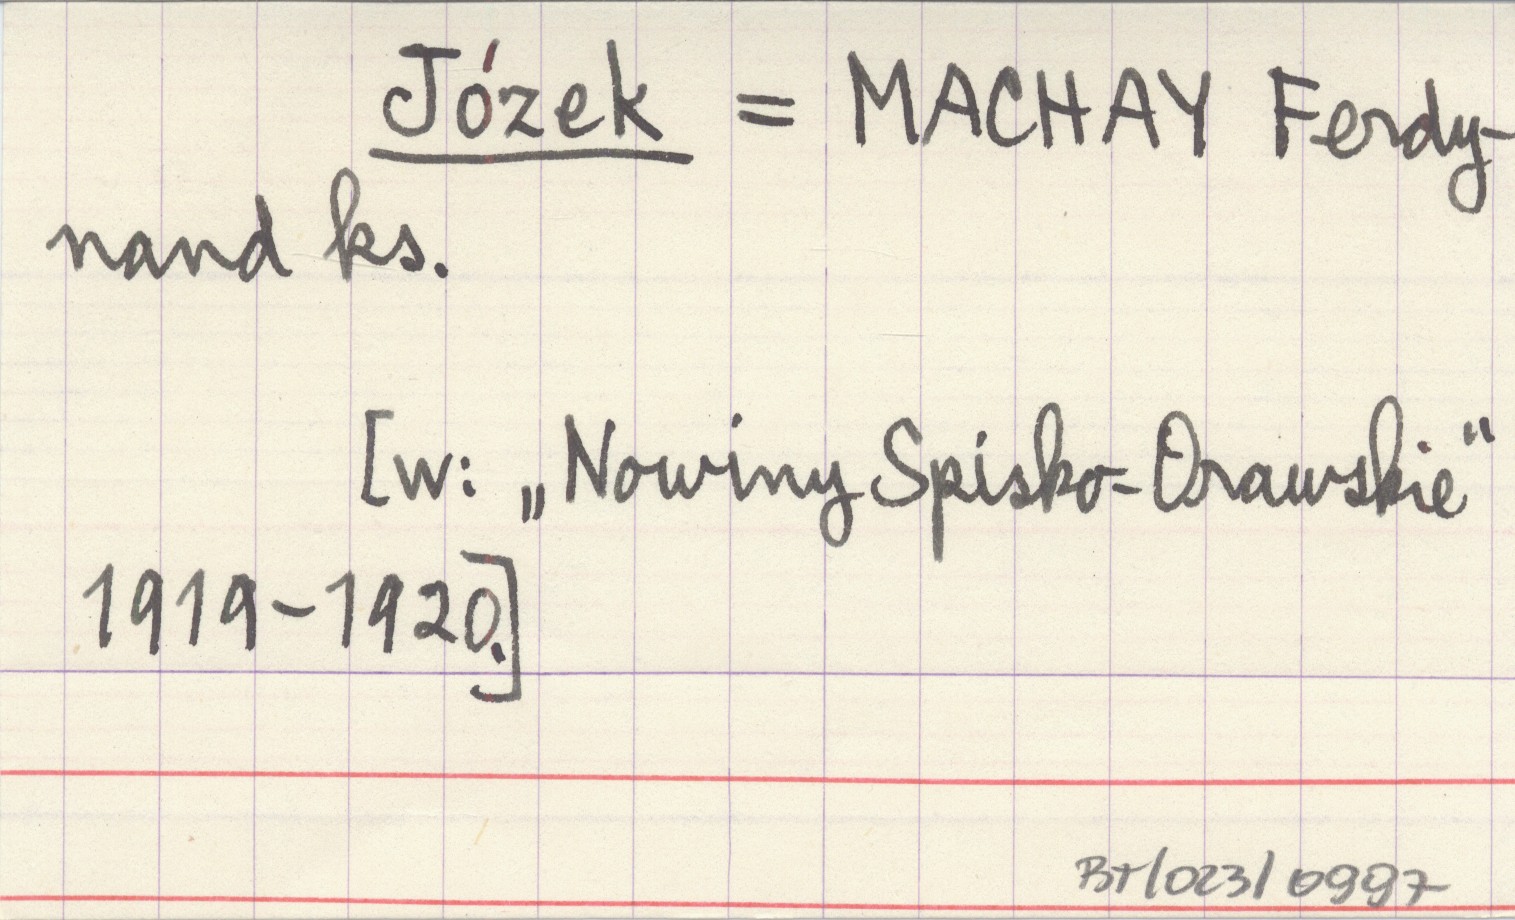 Józek = MACHAY Ferdy-
nand ks.
[w: „Nowiny Spisko-Orawskie"
1919-1920.]
BT/023/0997